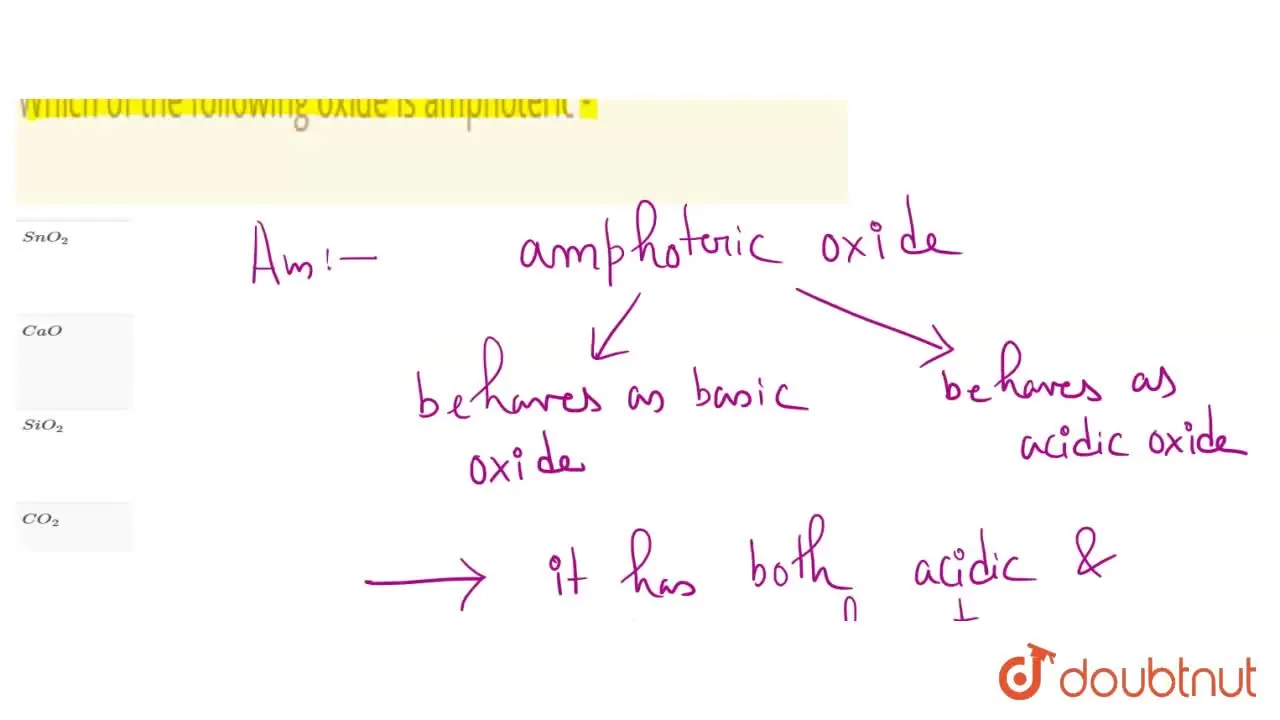 Which of the following oxide is amphoteric -
SnO₂
CaO
SiO₂
CO₂
Ans:-
amphoteric oxide
behaves as basic
oxide
behaves as
acidic oxide
it has both acidic &
doubtnut